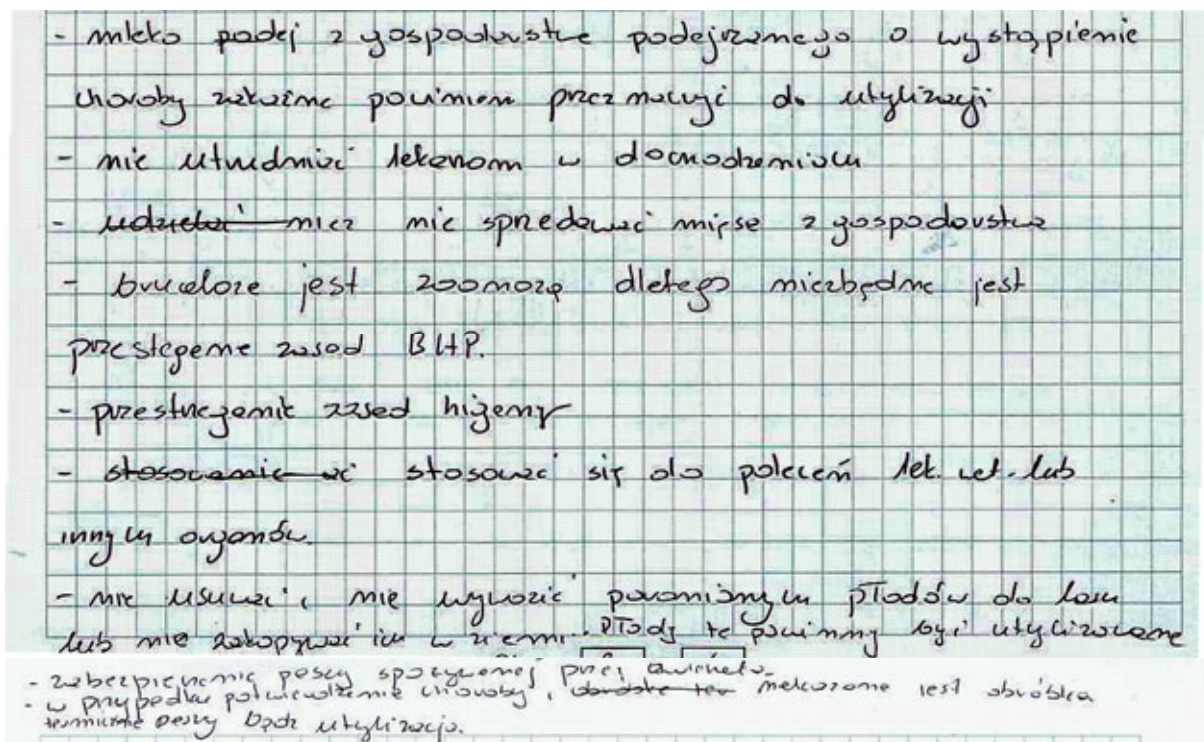 - mleko podej z gospodarstwa podejrzanego o wystąpienie
choroby zakaźne powinien przeznaczyć do utylizacji
- nie utrudniać lekarzom w dochodzeniach
- udzielać niez nie sprzedawać mięsa z gospodarstwa
- bruceloza jest zoonozą dlatego niezbędne jest
przestegenie zasad BHP.
- przestrzeganie zasad higieny
- stosowanie wć stosować się do poleceń lek. wet. lub
innych organów.
- nie usuwać, nie wywozić poronionych płodów do lasu
lub nie zakopywać ich w ziemi. Płody te powinny być utylizowane
- zabezpieczenie paszy spożywanej przez zwierzęta.
- w przypadku potwierdzenia choroby, obróbka ter nakazane jest obróbka
termiczne paszy bądź utylizacja.